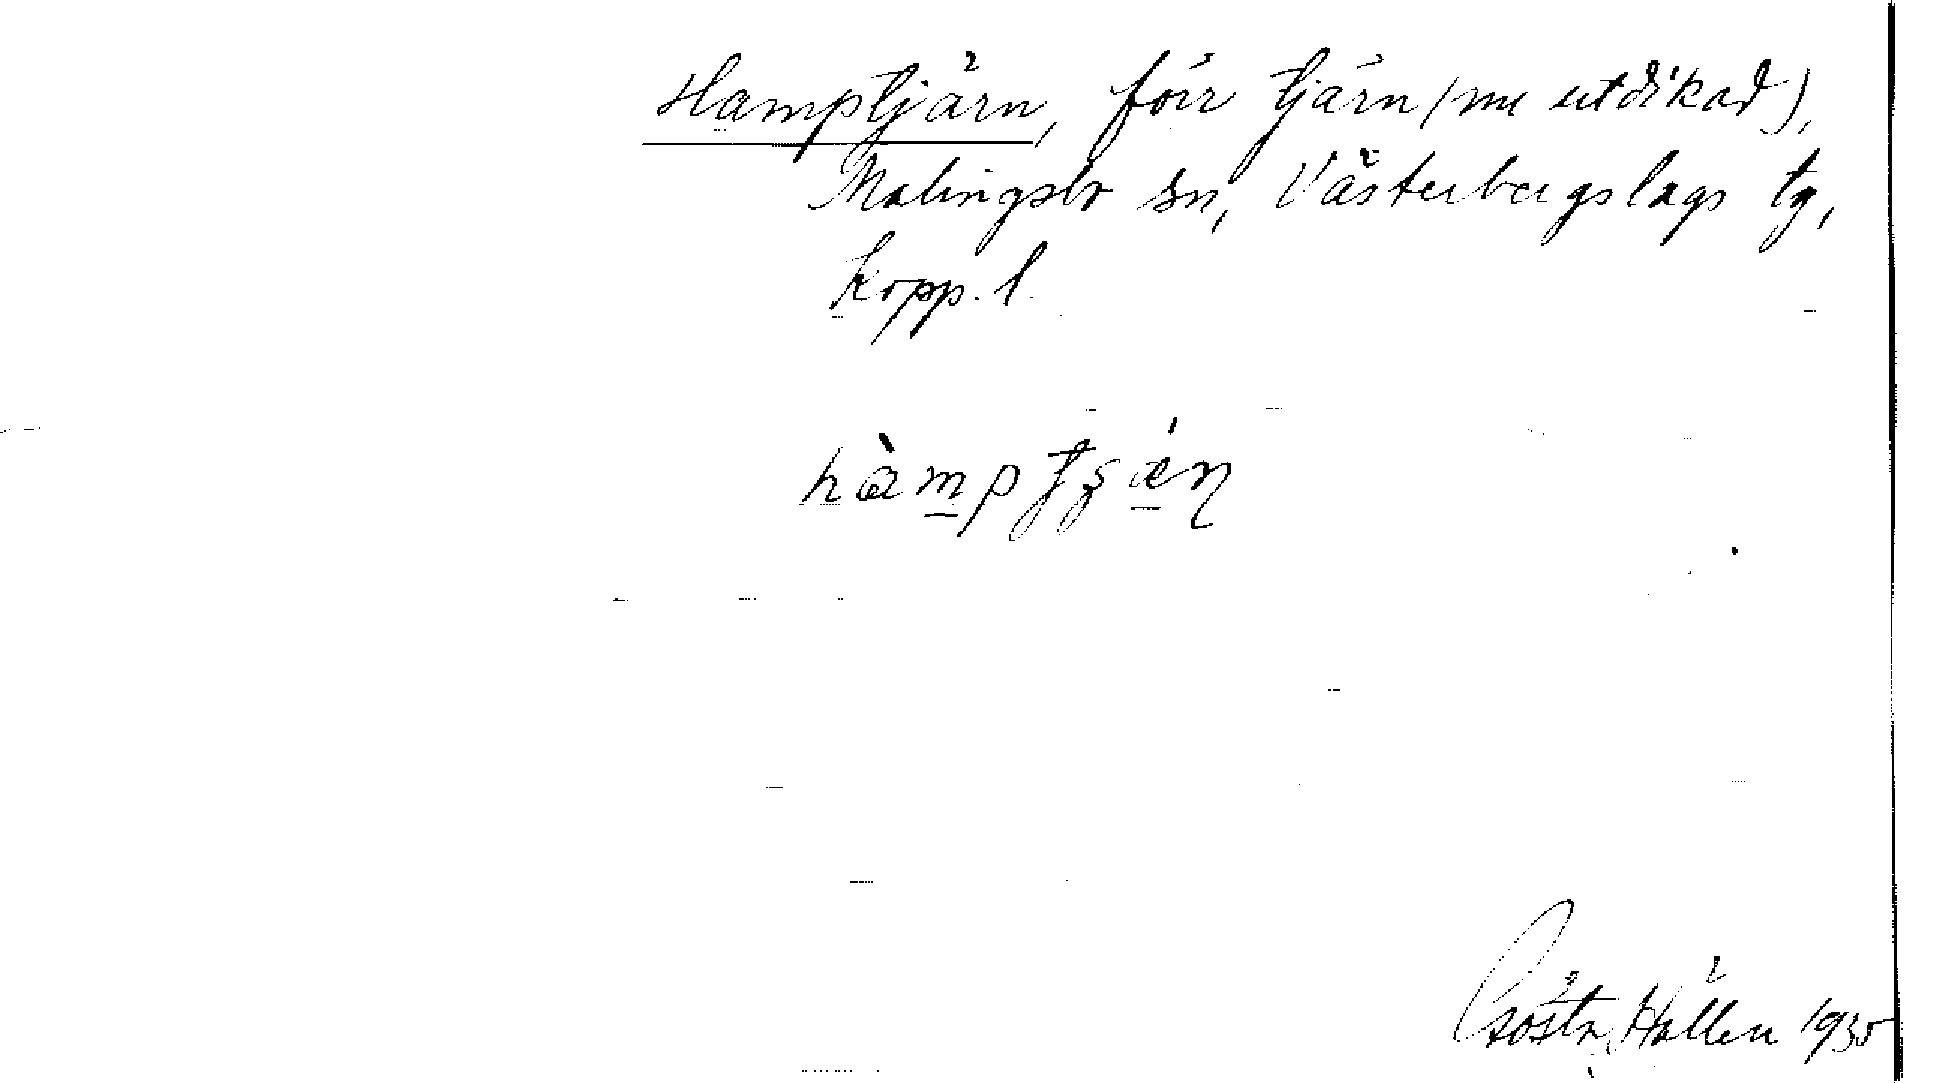 Hamptjärn, förr tjärn (nu utdikad),
Malingsbo sn, Västerbergslags tg,
Kopp. l.
hàmptʂǽɳ
Gösta Hallén 1935